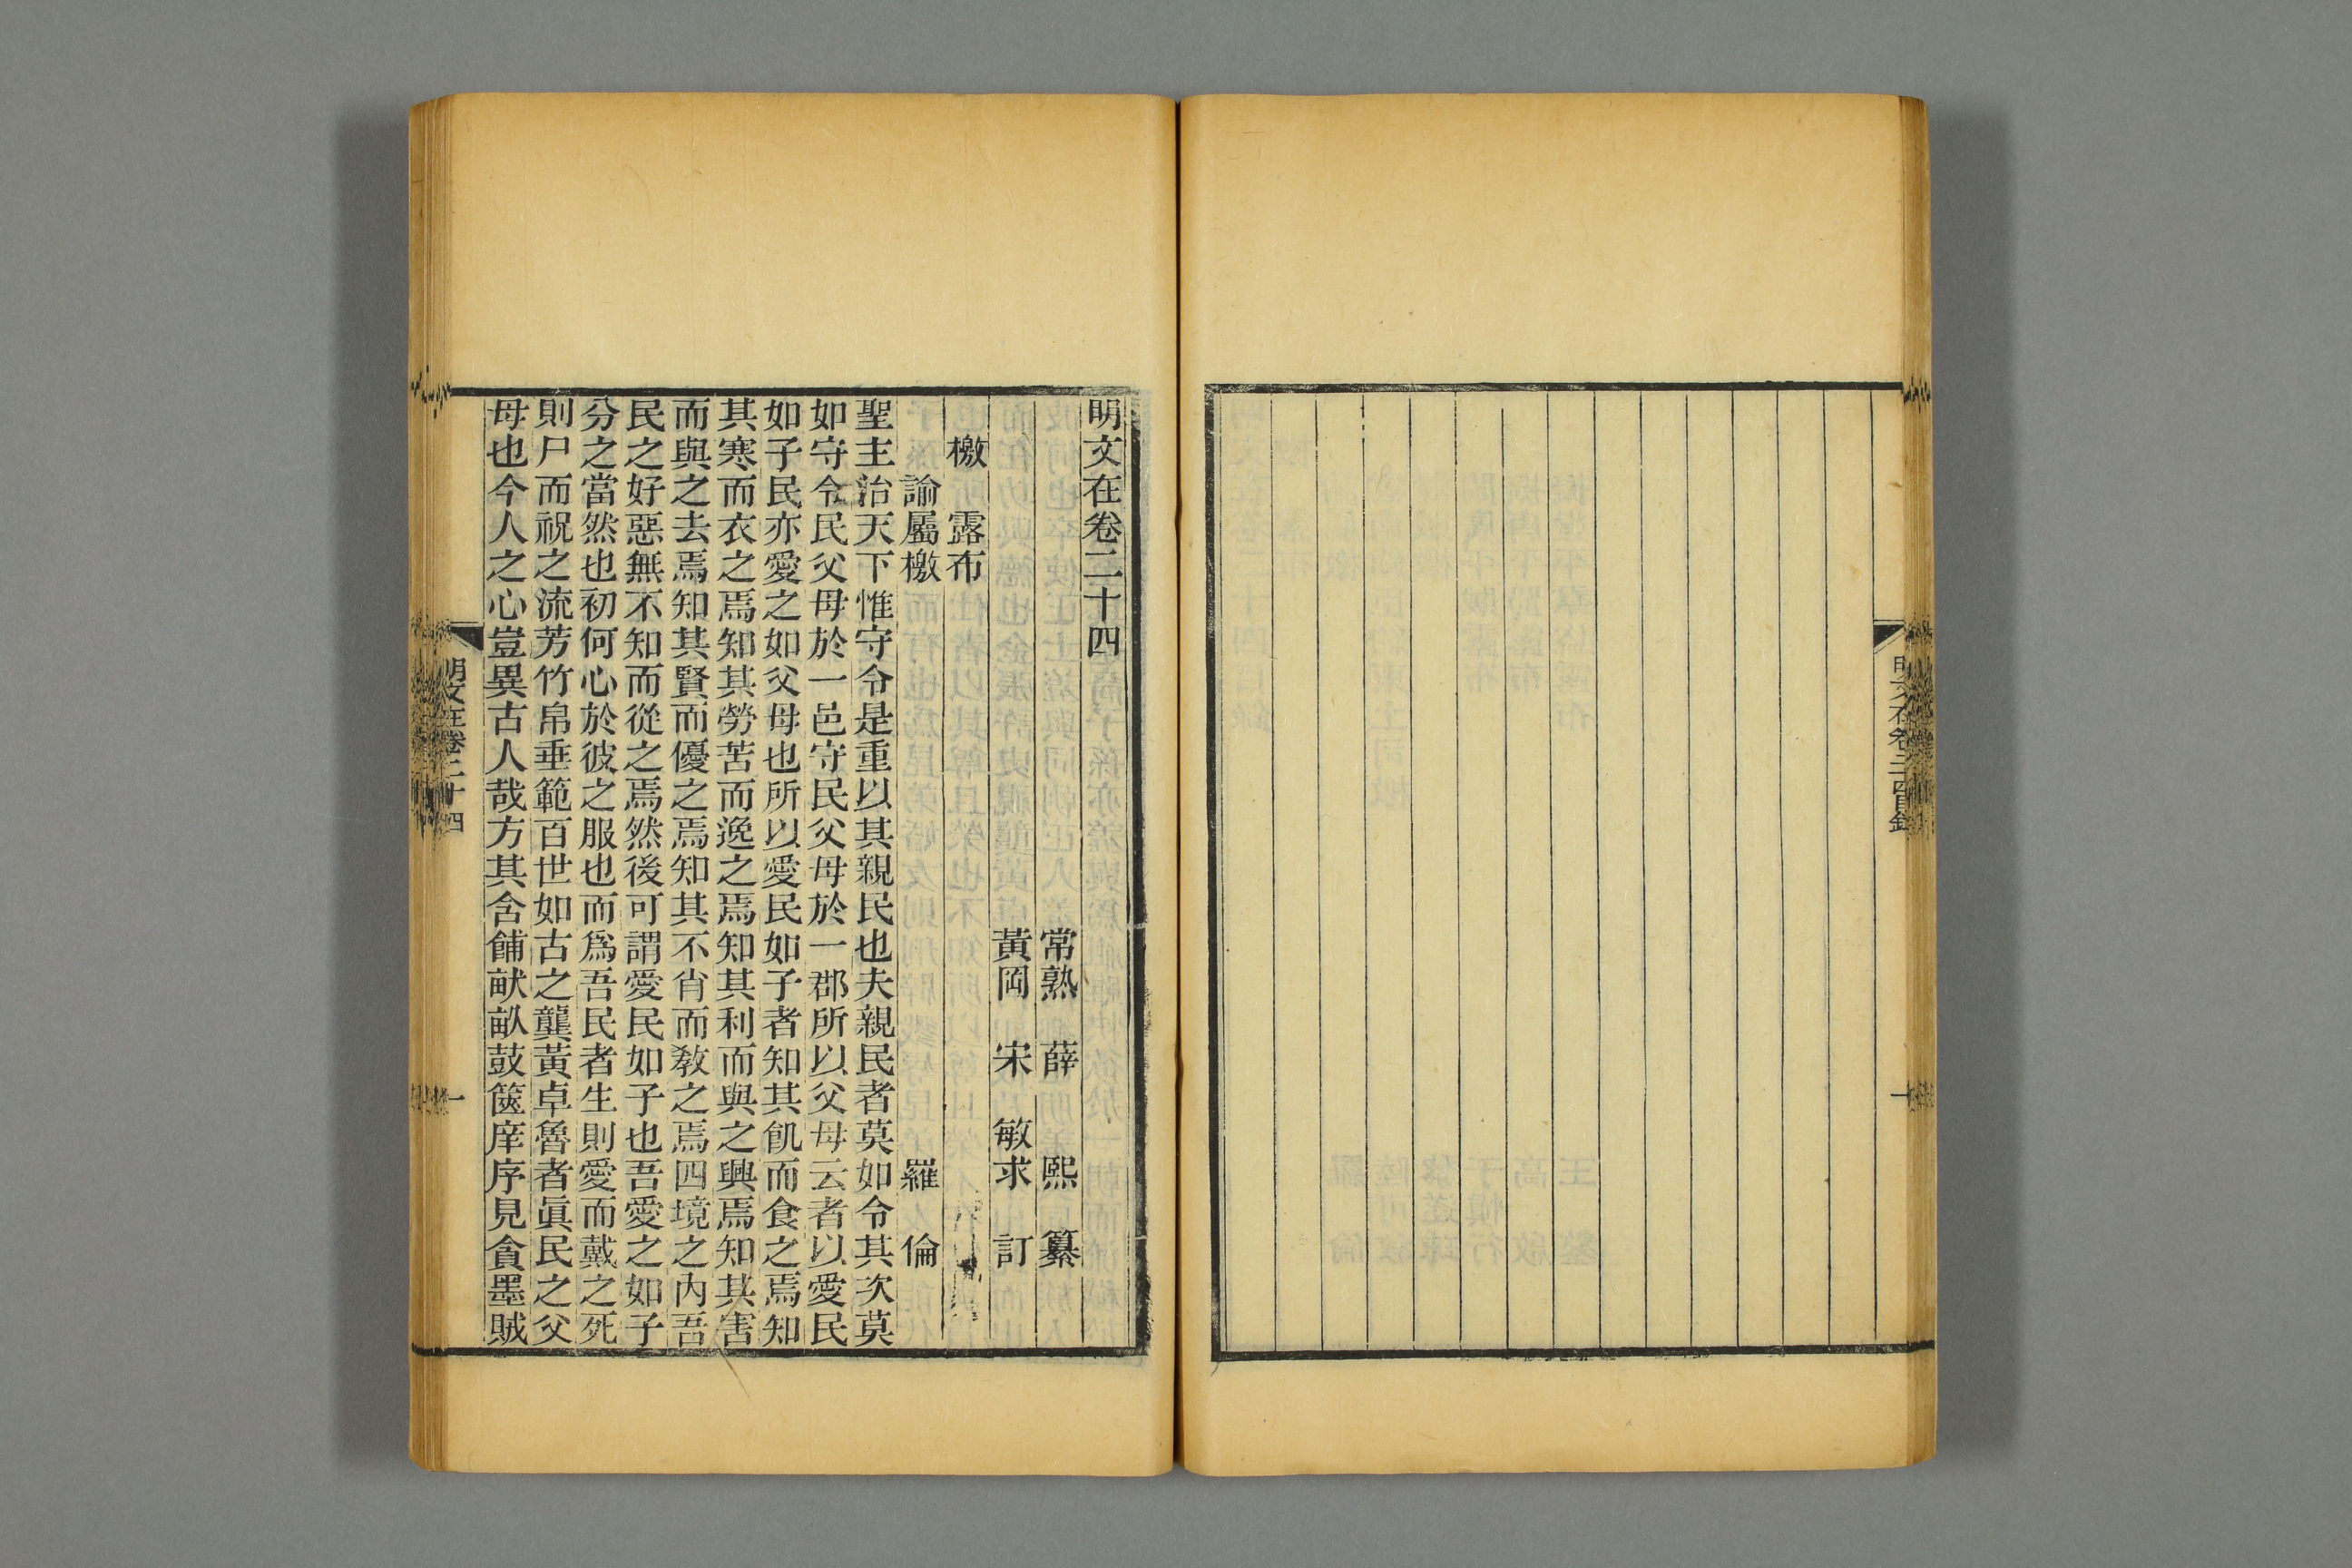 明文在卷二十四目錄
十
明文在卷二十四
常熟 薛 熙 纂
黃岡 宋 敏求 訂
檄 露布
諭屬檄 羅 倫
聖主治天下惟守令是重以其親民也夫親民者莫如令其次莫
如守令民父母於一邑守民父母於一郡所以父母云者以愛民
如子民亦愛之如父母也所以愛民如子者知其飢而食之焉知
其寒而衣之焉知其勞苦而逸之焉知其利而與之興焉知其害
而與之去焉知其賢而優之焉知其不肖而敎之焉四境之內吾
民之好惡無不知而從之焉然後可謂愛民如子也吾愛之如子
分之當然也初何心於彼之服也而爲吾民者生則愛而戴之死
則尸而祝之流芳竹帛垂範百世如古之龔黃卓魯者眞民之父
母也今人之心豈異古人哉方其含餔畎畝鼓篋庠序見貪墨賊
明文在卷二十四
一